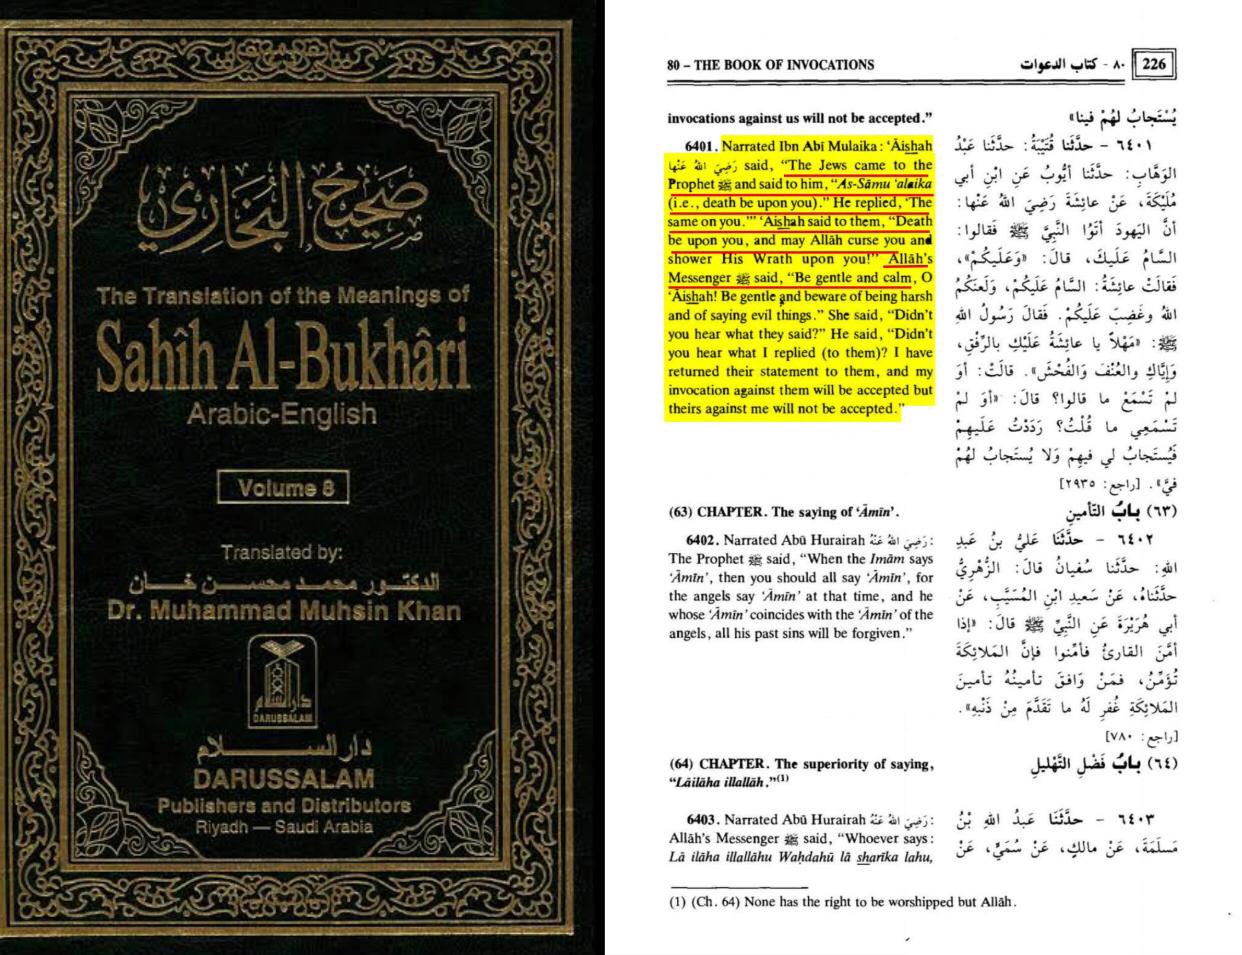 صحيح البخاري
The Translation of the Meanings of
Sahîh Al-Bukhâri
Arabic-English
Volume 8
Translated by:
الدكتور محمد محسن خان
Dr. Muhammad Muhsin Khan
دار السلام
DARUSSALAM
دار السلام
DARUSSALAM
Publishers and Distributors
Riyadh — Saudi Arabia
80 – THE BOOK OF INVOCATIONS
٨٠ - كتاب الدعوات
226
invocations against us will not be accepted.”
6401. Narrated Ibn Abī Mulaika: ‘Āishah
رَضِيَ اللهُ عَنْهَا said, “The Jews came to the
Prophet ﷺ and said to him, “As-Sāmu ‘alaika
(i.e., death be upon you).” He replied, ‘The
same on you.’” ‘Āishah said to them, “Death
be upon you, and may Allāh curse you and
shower His Wrath upon you!” Allāh’s
Messenger ﷺ said, “Be gentle and calm, O
‘Āishah! Be gentle and beware of being harsh
and of saying evil things.” She said, “Didn’t
you hear what they said?” He said, “Didn’t
you hear what I replied (to them)? I have
returned their statement to them, and my
invocation against them will be accepted but
theirs against me will not be accepted.”
(63) CHAPTER. The saying of ‘Āmīn’.
6402. Narrated Abū Hurairah رَضِيَ اللهُ عَنْهُ:
The Prophet ﷺ said, “When the Imām says
‘Āmīn’, then you should all say ‘Āmīn’, for
the angels say ‘Āmīn’ at that time, and he
whose ‘Āmīn’ coincides with the ‘Āmīn’ of the
angels, all his past sins will be forgiven.”
(64) CHAPTER. The superiority of saying,
“Lāilāha illallāh.”(1)
6403. Narrated Abū Hurairah رَضِيَ اللهُ عَنْهُ:
Allāh’s Messenger ﷺ said, “Whoever says:
Lā ilāha illallāhu Waḥdahū lā sharīka lahu,
يُسْتَجابُ لهُمْ فينا»
٦٤٠١ - حدَّثَنا قُتَيْبَةُ: حدَّثَنا عَبْدُ
الوَهَّابِ: حدَّثَنا أيُّوبُ عَنِ ابْنِ أبي
مُلَيْكَةَ، عَنْ عائشَةَ رَضِيَ اللهُ عَنْها:
أنَّ اليَهُودَ أتَوُا النَّبِيَّ ﷺ فَقالوا:
السَّامُ عَلَيكَ، قالَ: «وَعَلَيكُمْ»،
فَقالَتْ عائِشَةُ: السَّامُ عَلَيْكُمْ، وَلَعنَكُمُ
اللهُ وغَضِبَ عَلَيكُمْ. فَقالَ رَسُولُ اللهِ
ﷺ: «مَهْلًا يا عائِشَةُ عَلَيْكِ بالرِّفْقِ،
وَإيَّاكِ والعُنْفَ وَالفُحْشَ». قالَتْ: أوَ
لمْ تَسْمَعْ ما قالوا؟ قالَ: «أوَ لمْ
تَسْمَعِي ما قُلْتُ؟ رَدَدْتُ عَلَيهِمْ
فَيُسْتَجابُ لي فيهِمْ وَلا يُسْتَجابُ لهُمْ
فيَّ». [راجع: ٢٩٣٥]
(٦٣) بابُ التَّأمينِ
٦٤٠٢ - حدَّثَنا عَليُّ بنُ عَبدِ
اللهِ: حدَّثَنا سُفيانُ قالَ: الزُّهْرِيُّ
حدَّثَناهُ، عَنْ سَعيدِ ابْنِ المُسَيَّبِ، عَنْ
أبي هُرَيْرَةَ عَنِ النَّبِيِّ ﷺ قالَ: «إذا
أمَّنَ القارئُ فأمِّنوا فإنَّ المَلائكَةَ
تُؤَمِّنُ، فمَنْ وَافَقَ تأمينُهُ تأمينَ
المَلائِكَةِ غُفِرَ لَهُ ما تَقَدَّمَ مِنْ ذَنْبِهِ».
[راجع: ٧٨٠]
(٦٤) بابُ فَضْلِ التَّهْليلِ
٦٤٠٣ - حدَّثَنا عَبدُ اللهِ بْنُ
مَسلَمَةَ، عَنْ مالِكٍ، عَنْ سُمَيٍّ، عَنْ
(1) (Ch. 64) None has the right to be worshipped but Allāh.